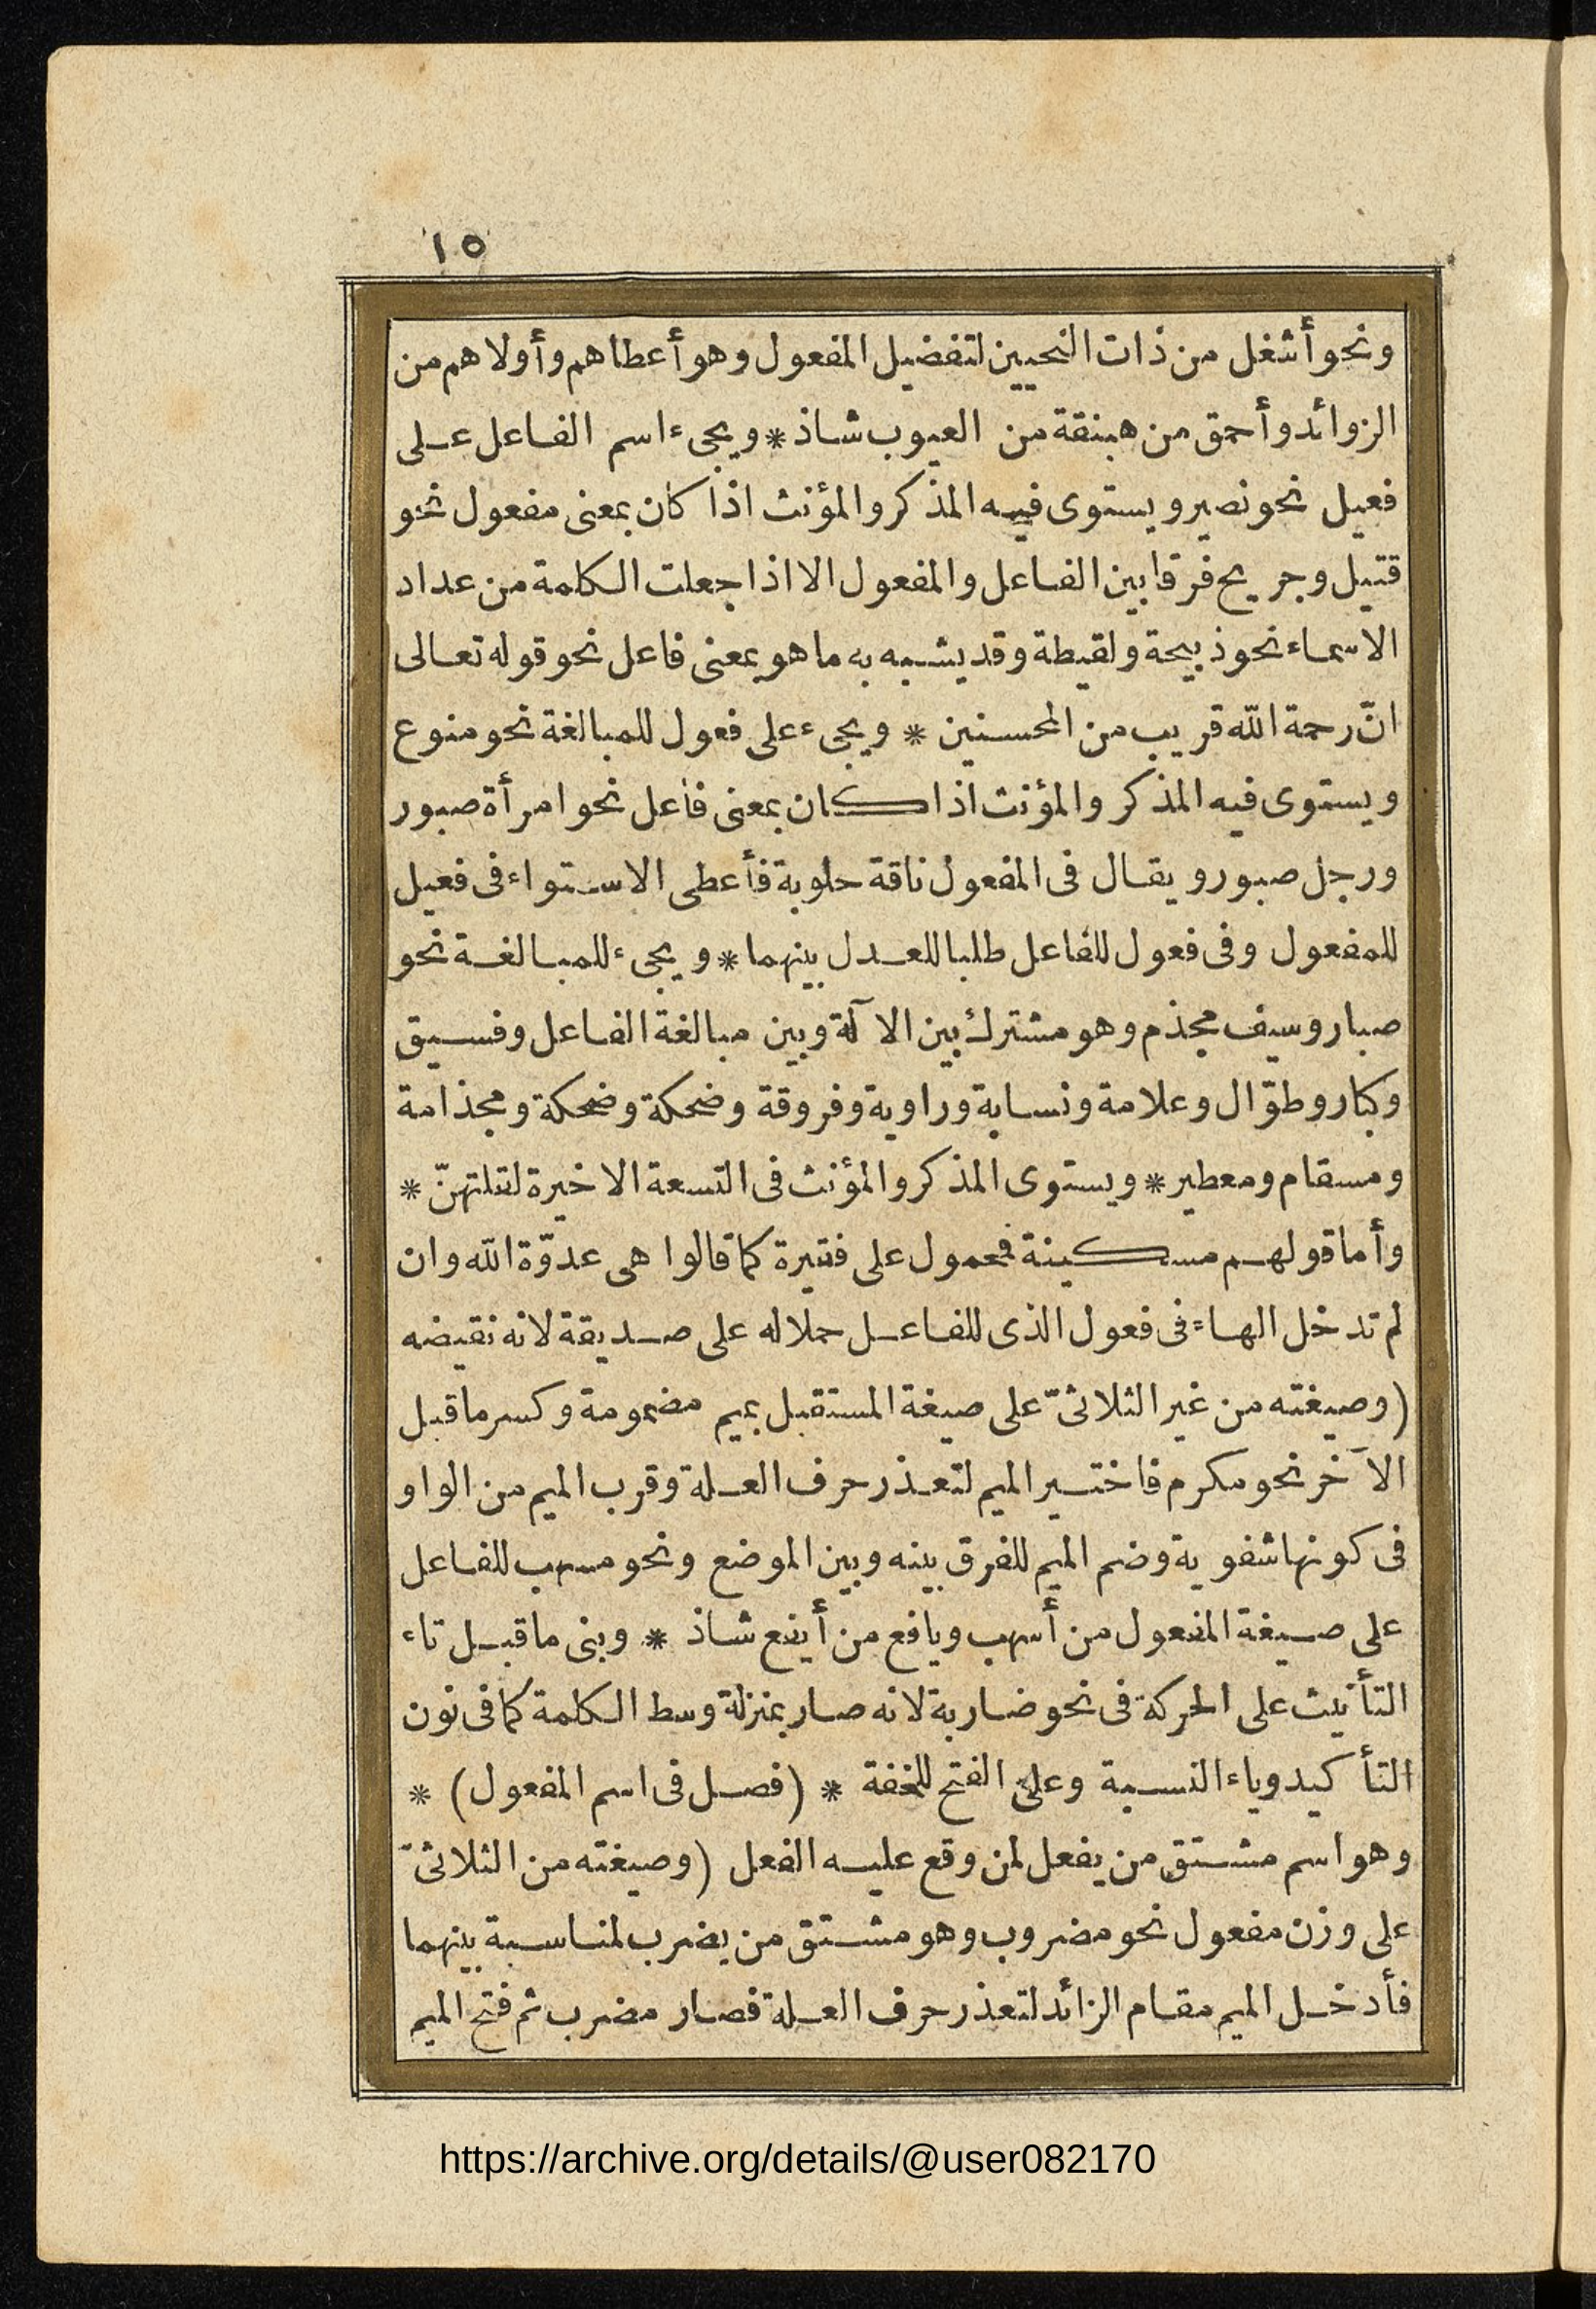 ١٥
ونحو أشغل من ذات النحيين لتفضيل المفعول وهو أعطاهم وأولاهم من
الزوائد وأحمق من هبنقة من العيوب شاذ * ويجىء اسم الفاعل على
فعيل نحو نصير ويستوى فيه المذكر والمؤنث اذا كان بمعنى مفعول نحو
قتيل وجريح فرقا بين الفاعل والمفعول الا اذا جعلت الكلمة من عداد
الاسماء نحو ذبيحة ولقيطة وقد يشبه به ما هو بمعنى فاعل نحو قوله تعالى
انّ رحمة الله قريب من المحسنين * ويجىء على فعول للمبالغة نحو منوع
ويستوى فيه المذكر والمؤنث اذا كان بمعنى فاعل نحو امرأة صبور
ورجل صبور ويقال فى المفعول ناقة حلوبة فأعطى الاستواء فى فعيل
للمفعول وفى فعول للفاعل طلبا للعدل بينهما * ويجىء للمبالغة نحو
صبار وسيف مجذم وهو مشترك بين الآلة وبين مبالغة الفاعل وفسيق
وكبار وطوّال وعلامة ونسابة وراوية وفروقة وضحكة وضحكة ومجذامة
ومسقام ومعطير * ويستوى المذكر والمؤنث فى التسعة الاخيرة لقلتهنّ *
وأما قولهم مسكينة فمحمول على فقيرة كما قالوا هى عدوّة الله وان
لم تدخل الهاء فى فعول الذى للفاعل حملا له على صديقة لانه نقيضه
(وصيغته من غير الثلاثىّ على صيغة المستقبل بميم مضمومة وكسر ما قبل
الآخر نحو مكرم فاختير الميم لتعذر حرف العلة وقرب الميم من الواو
فى كونها شفوية وضم الميم للفرق بينه وبين الموضع ونحو مسهب للفاعل
على صيغة المفعول من أسهب ويافع من أيفع شاذ * وبنى ما قبل تاء
التأنيث على الحركة فى نحو ضاربة لانه صار بمنزلة وسط الكلمة كما فى نون
التأكيد وياء النسبة وعلى الفتح للخفة * (فصل فى اسم المفعول) *
وهو اسم مشتق من يفعل لمن وقع عليه الفعل (وصيغته من الثلاثىّ
على وزن مفعول نحو مضروب وهو مشتق من يضرب لمناسبة بينهما
فأدخل الميم مقام الزائد لتعذر حرف العلة فصار مضرب ثم فتح الميم
https://archive.org/details/@user082170